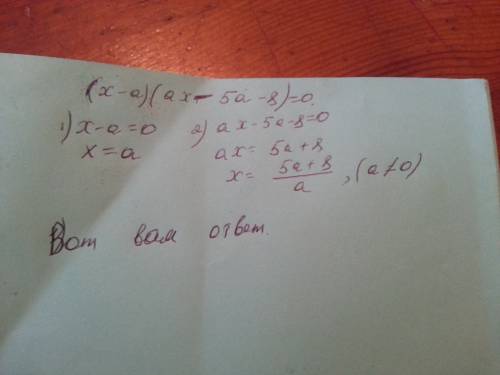 (x-a)(ax-5a-8)=0.
1) x-a=0 2) ax-5a-8=0
x=a ax= 5a+8
x= \frac{5a+8}{a}, (a≠0)
Вот вам ответ.